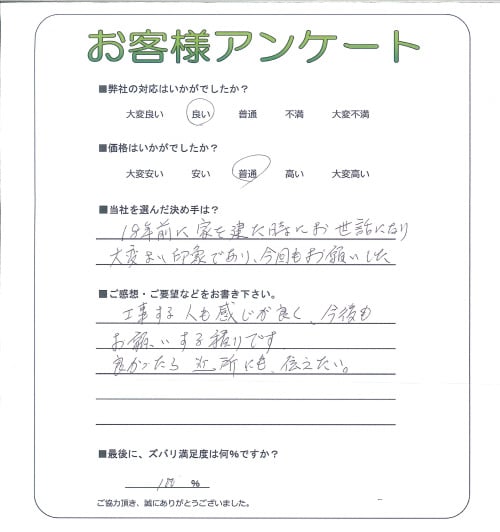 お客様アンケート
■弊社の対応はいかがでしたか？
大変良い 良い 普通 不満 大変不満
■価格はいかがでしたか？
大変安い 安い 普通 高い 大変高い
■当社を選んだ決め手は？
19年前に家を建た時にお世話になり
大変よい印象であり、今回もお願いした
■ご感想・ご要望などをお書き下さい。
工事する人も感じが良く、今後も
お願いする積りです
良かったら近所にも、伝えたい。
■最後に、ズバリ満足度は何%ですか？
100 %
ご協力頂き、誠にありがとうございました。